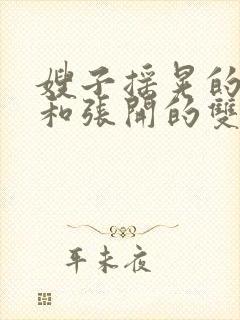 嫂子摇晃的
和張開的雙
年未夜